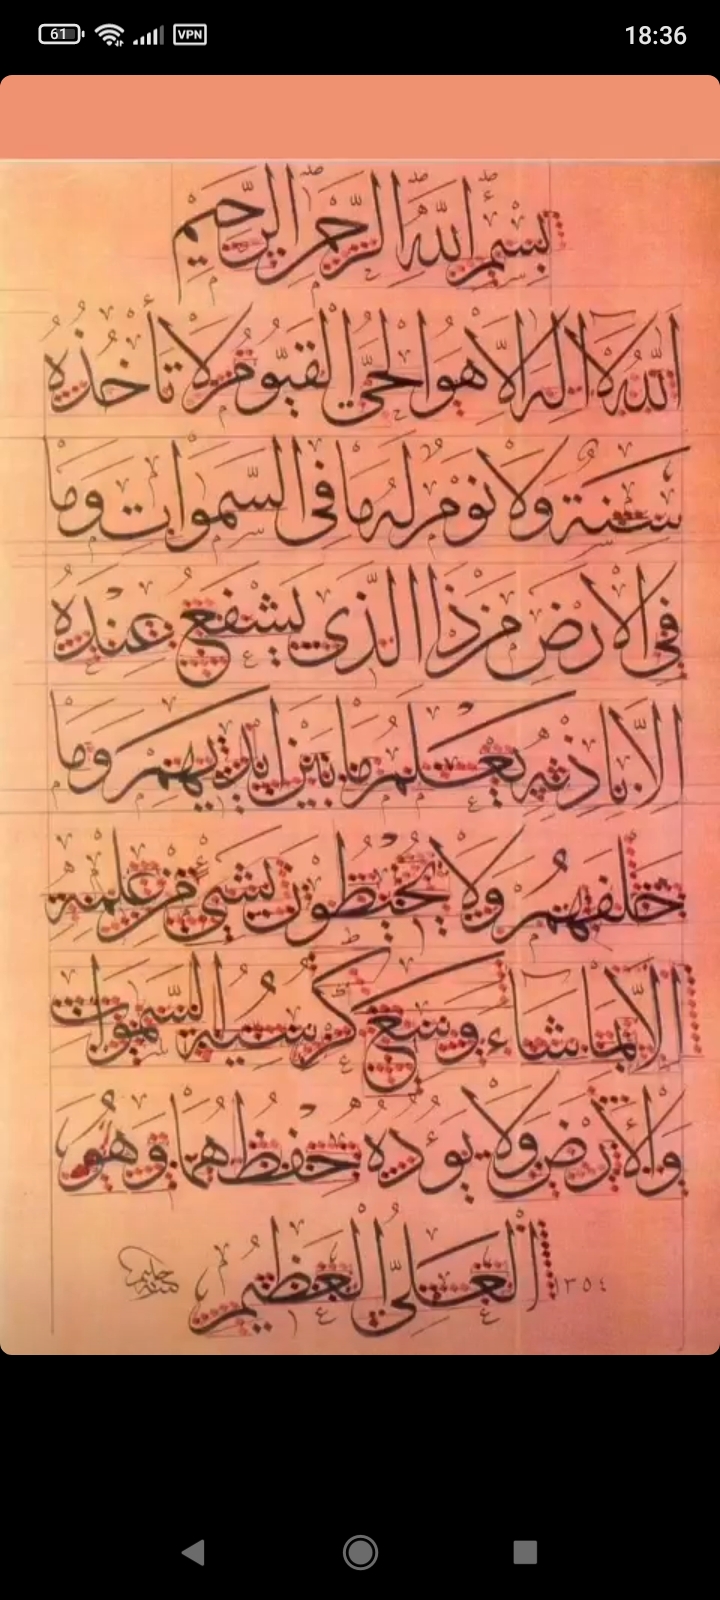 61 VPN 18:36
بسم الله الرحمن الرحيم
الله لا اله الا هو الحي القيوم لا تأخذه
سنة ولا نوم له ما في السموات وما
في الارض من ذا الذي يشفع عنده
الا باذنه يعلم ما بين ايديهم وما
خلفهم ولا يحيطون بشئ من علمه
الا بما شاء وسع كرسيه السموات
والارض ولا يؤده حفظهما وهو
العلي العظيم
١٣٥٤